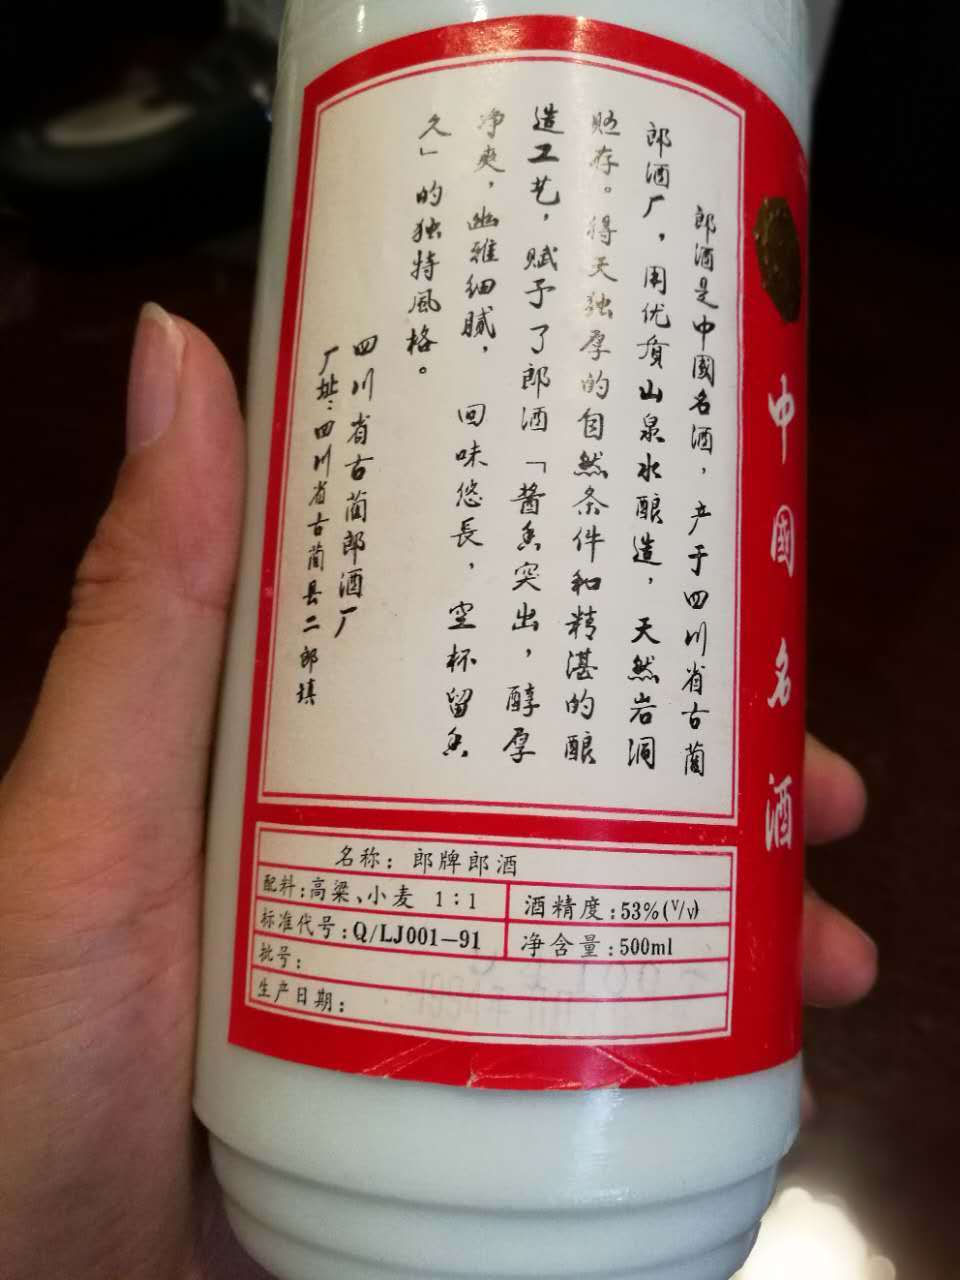 中國名酒
郎酒是中國名酒，产于四川省古藺
郎酒厂，用优质山泉水酿造，天然岩洞
贮存。得天独厚的自然条件和精湛的酿
造工艺，赋予了郎酒「酱香突出，醇厚
净爽，幽雅细腻，回味悠長，空杯留香
久」的独特風格。
四川省古藺郎酒厂
厂址：四川省古藺县二郎镇
名称：郎牌郎酒
配料：高粱、小麦 1：1
酒精度：53%(V/v)
标准代号：Q/LJ001-91
净含量：500ml
批号：
生产日期：